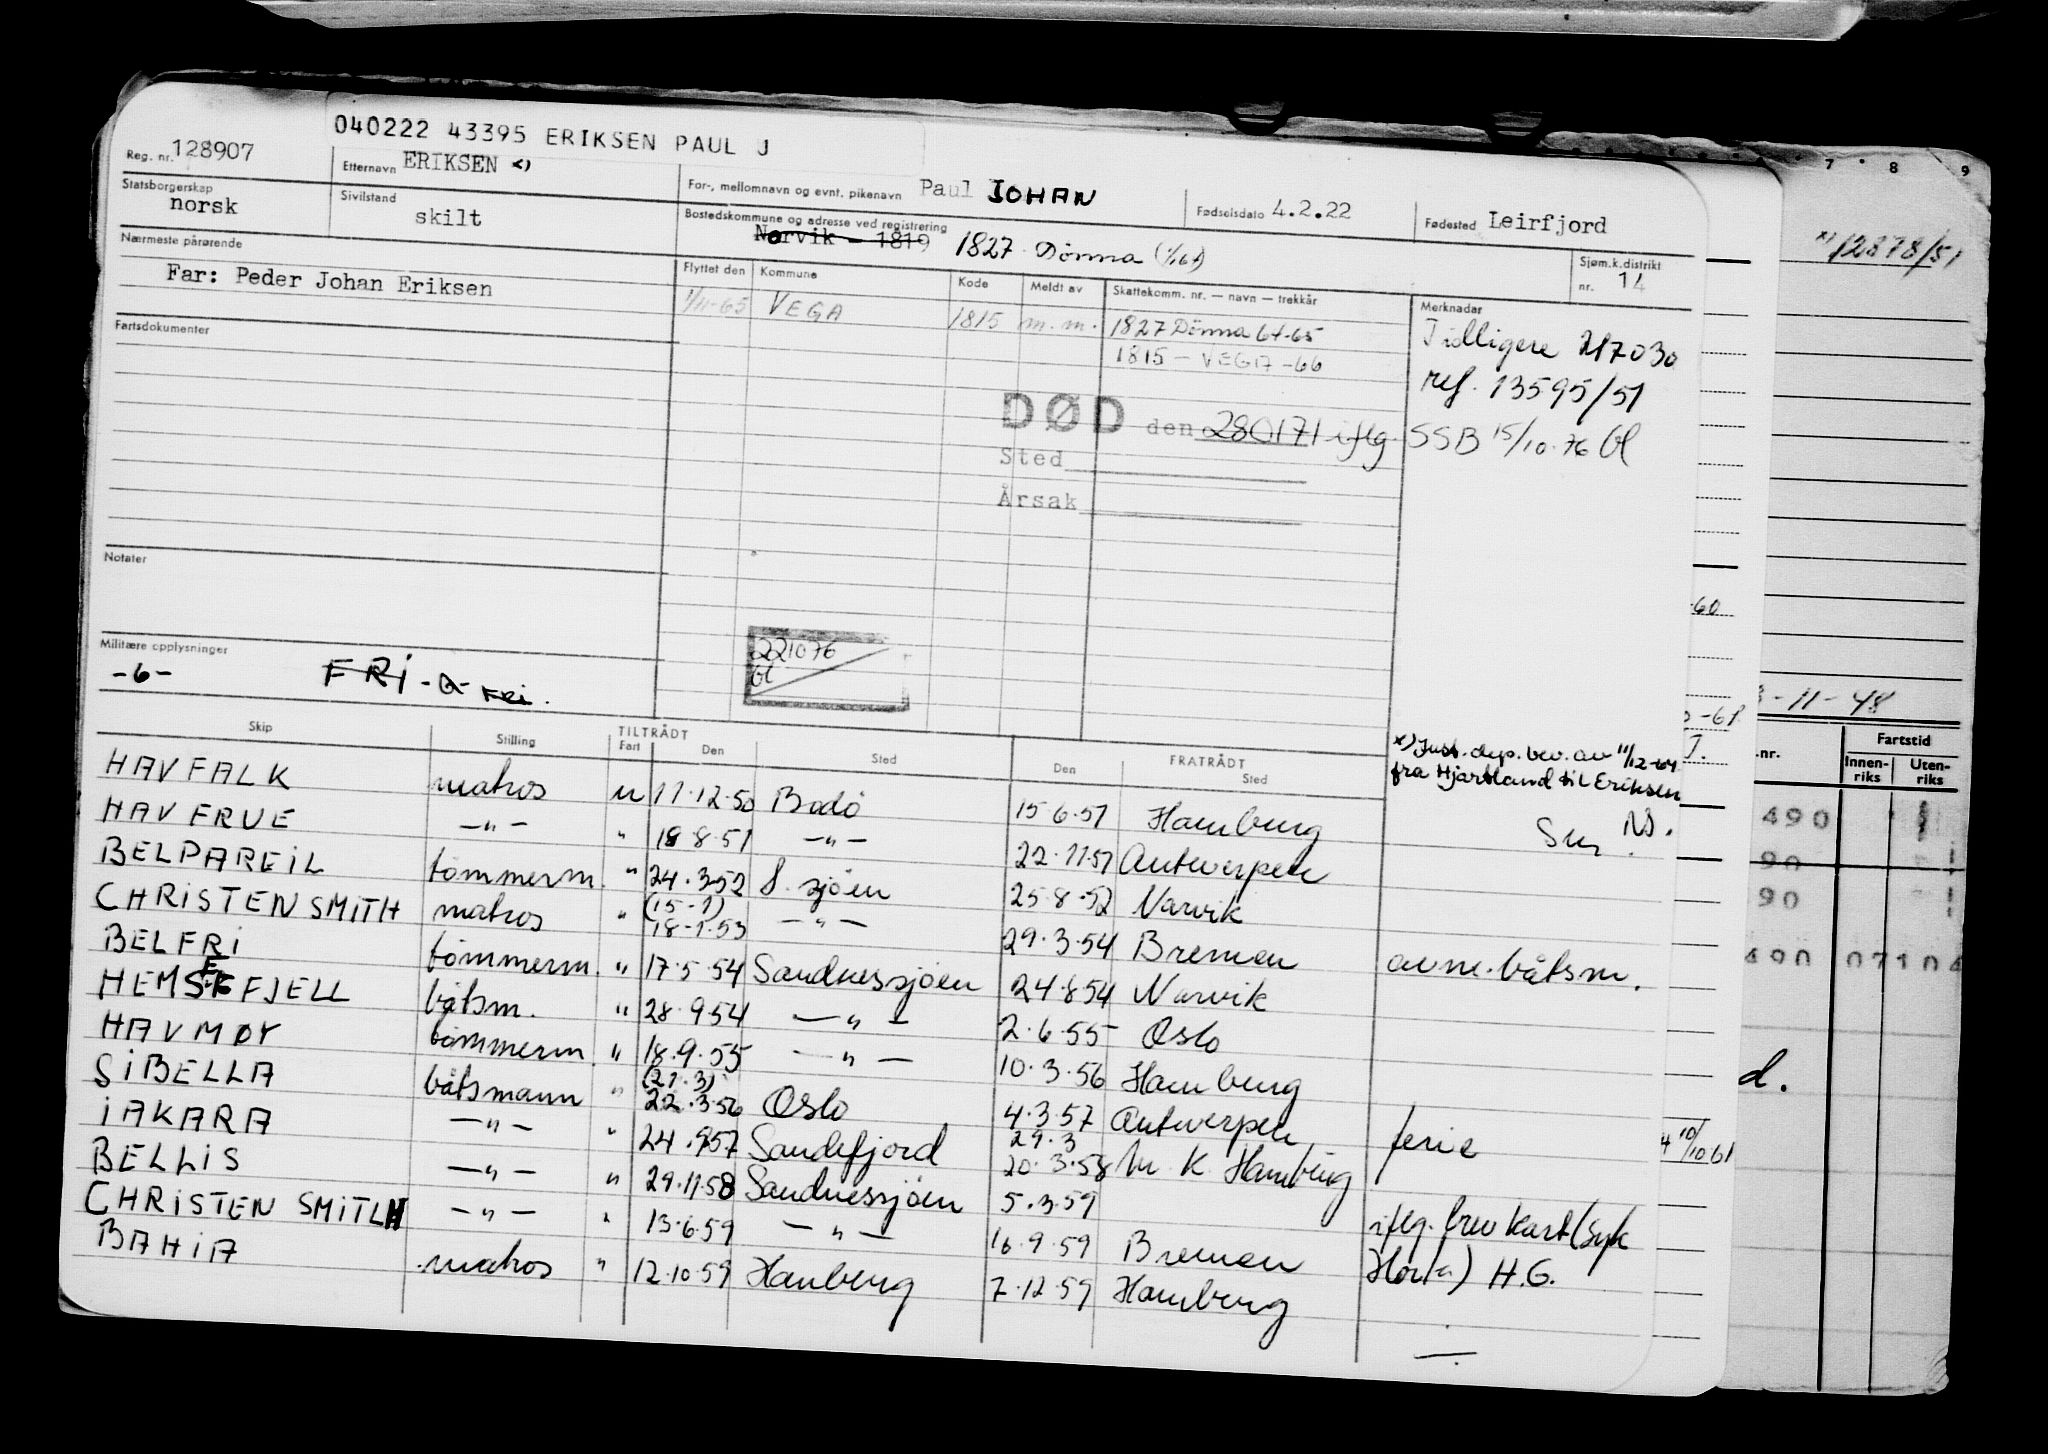 040222 43395 ERIKSEN PAUL J
Reg. nr. 128907 Etternavn ERIKSEN x) For-, mellomnavn og evnt. pikenavn Paul JOHAN Fødselsdato 4.2.22 Fødested Leirfjord
Statsborgerskap norsk Sivilstand skilt Bostedskommune og adresse ved registrering Norvik - 1819 1827 Dønna Sjøm.k.distrikt nr. 14
Nærmeste pårørende
Far: Peder Johan Eriksen
Flyttet den Kommune Kode Meldt av Skattekomm. nr. — navn — trekkår Merknader
1/11-65 VEGA 1815 m.m. 1827 Dønna 64-65
1815 - VEGA - 66
Tidligere 217030
ref. 13595/51
Fartsdokumenter
DØD den 280171 iflg. SSB 15/10.76 Gl
Sted
Årsak
Notater
221076
Gl
Militære opplysninger
-6- FRi - a - FRi.
Skip Stilling TILTRÅDT Fart Den Sted FRATRÅDT Den Sted
x) Just.dep. bev. av 11/12-64
fra Hjartland til Eriksen
HAVFALK matros u 11.12.50 Bodø 15.6.51 Hamburg
HAVFRUE -"- " 18.8.51 -"- 22.11.51 Antwerpen
BELPAREiL tømmerm. " 24.3.52 S.sjøen 25.8.52 Narvik
CHRiSTEN SMiTH matros " (15-1) 18-1.53 -"- 29.3.54 Bremen avm. båtsm.
BELFRi tømmerm. " 17.5.54 Sandnessjøen 24.8.54 Narvik
HEMSEFJELL båtsm. " 28.9.54 -"- 2.6.55 Oslo
HAVMØY tømmerm. " 18.9.55 -"- 10.3.56 Hamburg
SiBELLA båtsmann " (21.3) 22.3.56 Oslo 4.3.57 Antwerpen ferie
iAKARA -"- " 24.9.57 Sandefjord 29.3 20.3.58 Hamburg
BELLiS -"- " 29.11.58 Sandnessjøen 5.3.59 iflg. brevkort (syk
CHRiSTEN SMiTH -"- " 13.6.59 -"- 16.9.59 Bremen Horta) H.G.
BAHiA matros " 12.10.59 Hamburg 7.12.59 Hamburg
7 8 9
x) 12878/51
-60
-11-48
-61
nr. Fartstid
Innenriks Utenriks
490
90
90
490 07104
d.
10/10 61